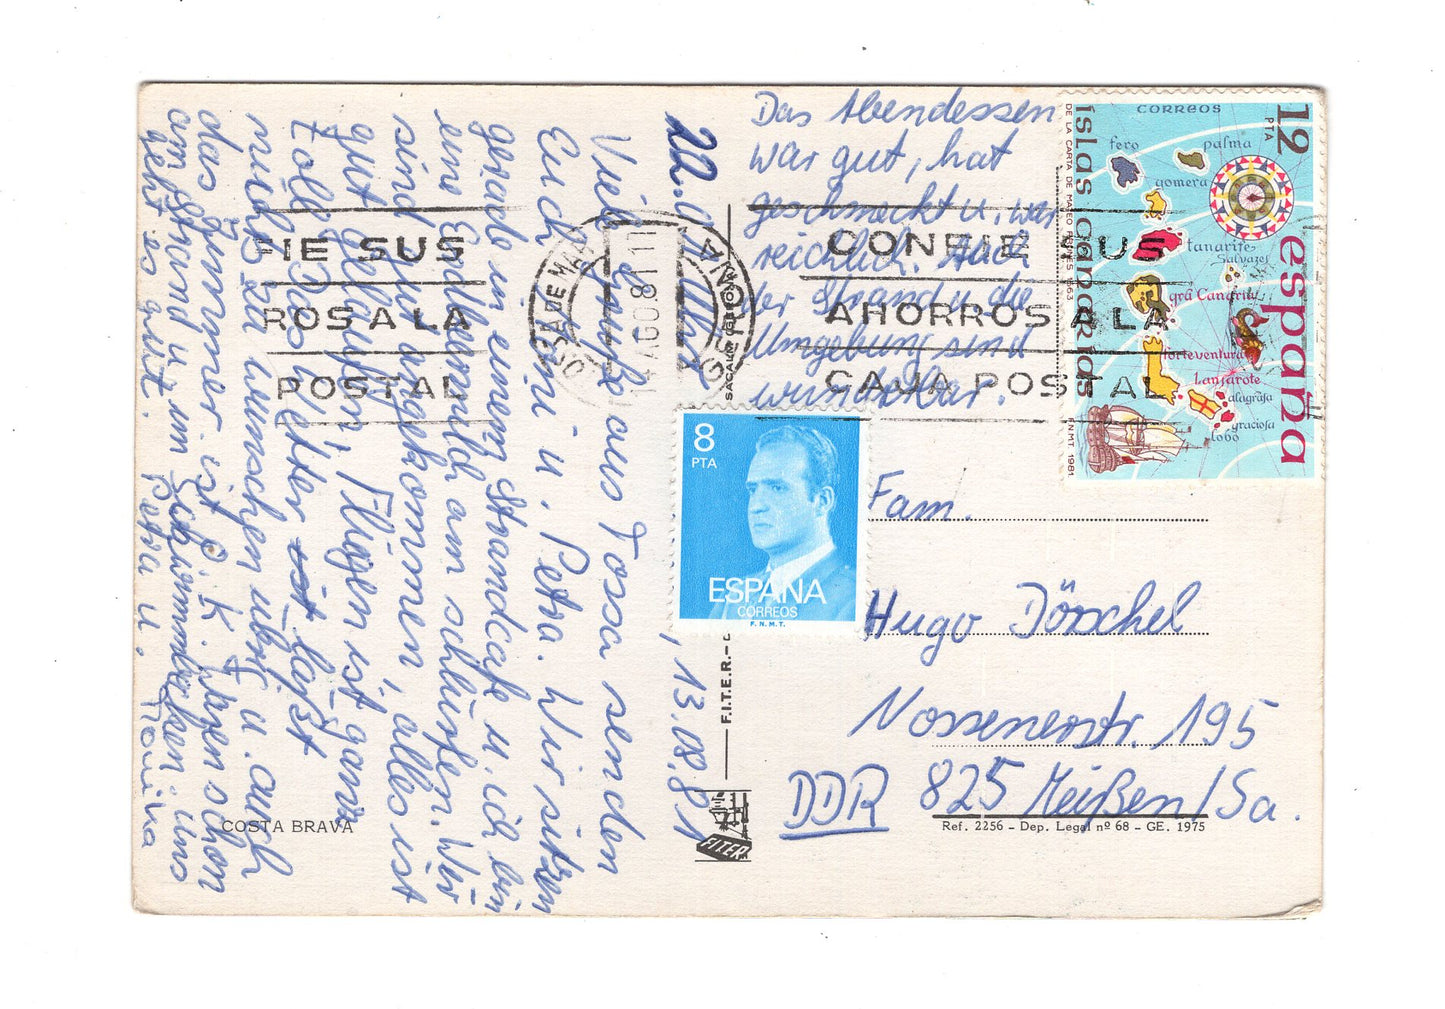 22.0 Uhr, 13.08.81
Viele Grüße aus Tossa senden
Euch u. Petra. Wir sitzen
gerade in einem Strandcafe u. ich bin
eine am schlürfen. Wir
sind gut angekommen, alles ist
gut gelaufen, Fliegen ist ganz
toll. Das Wetter ist läßt
nichts zu wünschen übrig u. auch
das Zimmer ist o.K. Waren schon
am Strand u. im Schwimmbecken. Uns
geht es gut. Petra u. Monika
Das Abendessen
war gut, hat
geschmeckt u. war
reichlich. Auch
der Strand u. die
Umgebung sind
wunderbar.
FIE SUS
ROS A LA
POSTAL
TOSSA DE MAR
GERONA
14 AGO. 81 11
CONFIE SUS
AHORROS A LA
CAJA POSTAL
CORREOS
12
PTA
españa
ISLAS CANARIAS
DE LA CARTA DE MATEO PRUNES 1563
F.N.M.T. 1981
fero
palma
gomera
tanarife
Salvazes
grã Canaria
forteventura
Lanzarote
alagrasa
graciosa
lobo
8
PTA
ESPAÑA
CORREOS
F.N.M.T.
Fam.
Hugo Dörschel
Nossenerstr. 195
DDR 825 Meißen/Sa.
COSTA BRAVA
F.I.T.E.R.
FITER
Ref. 2256 - Dep. Legal nº 68 - GE. 1975